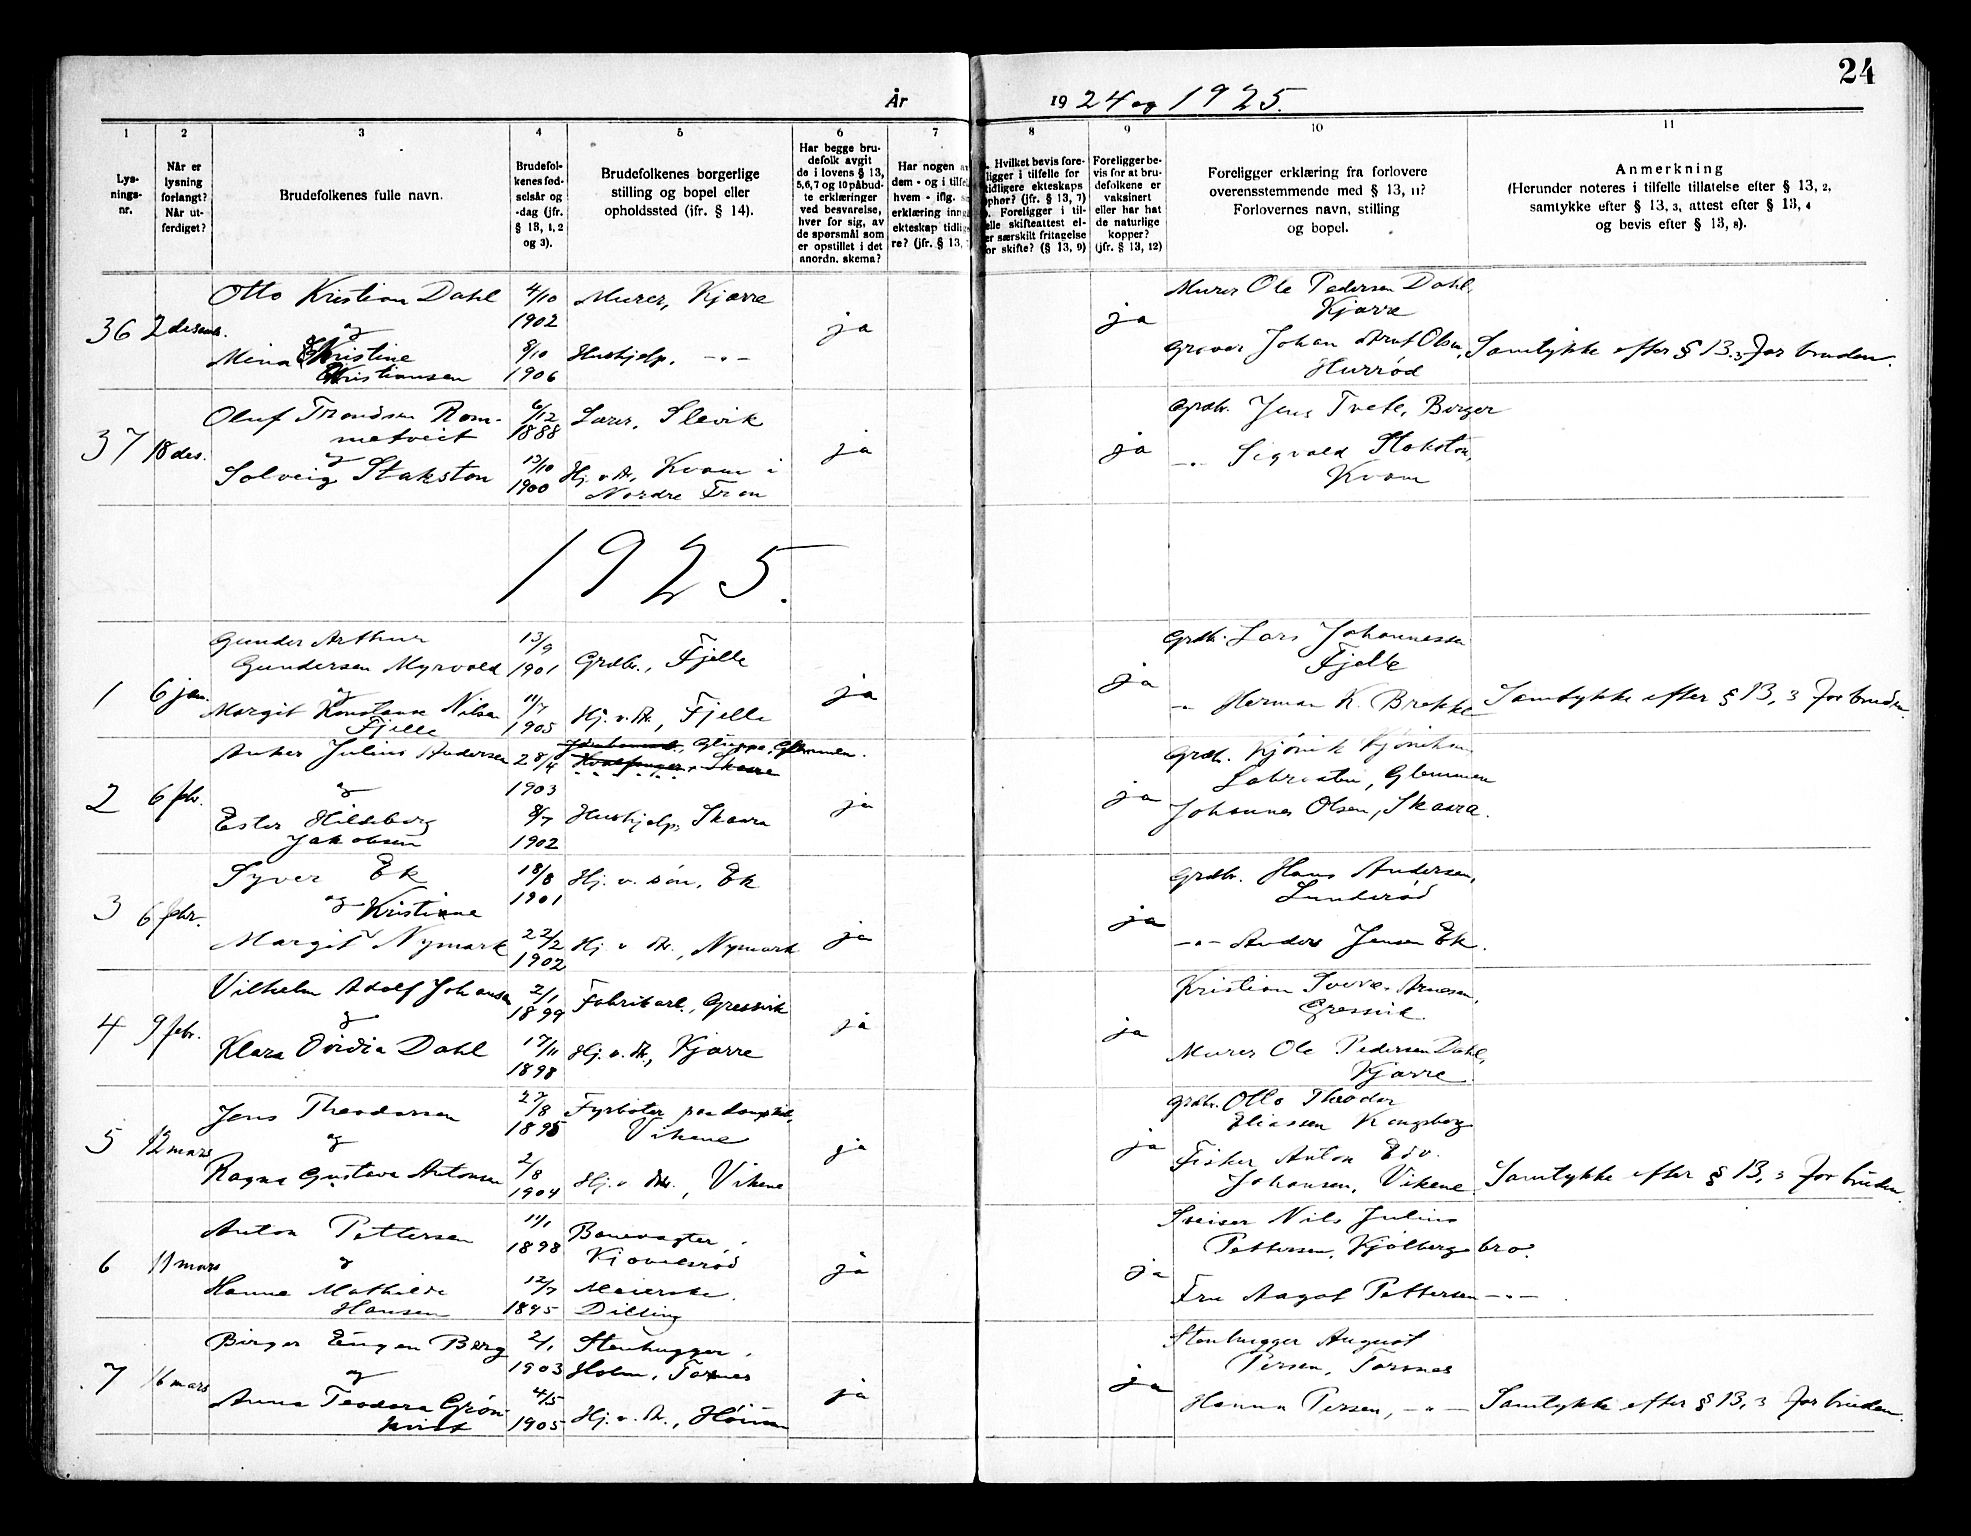 24
År 1924 og 1925.
1 2 3 4 5 6 7 8 9 10 11
Lys-
nings-
nr.
Når er
lysning
forlangt?
Når ut-
ferdiget?
Brudefolkenes fulle navn.
Brudefol-
kenes fød-
selsår og
-dag (jfr.
§ 13, 1, 2
og 3).
Brudefolkenes borgerlige
stilling og bopel eller
opholdssted (ifr. § 14).
Har begge bru-
defolk avgit
de i lovens § 13,
5,6,7 og 10 påbud-
te erklæringer
ved besvarelse,
hver for sig, av
de spørsmål som
er opstillet i det
anordn. skema?
Har nogen av
dem - og i tilfel
hvem - iflg.
erklæring inng
ekteskap tidlig
re? (jfr. § 13,
Hvilket bevis fore-
ligger i tilfelle for
tidligere ekteskaps
ophør? (jfr. § 13, 7)
Foreligger i til-
elle skifteattest el-
er særskilt fritagelse
for skifte? (§ 13, 9)
Foreligger be-
vis for at bru-
defolkene er
vaksinert
eller har hat
de naturlige
kopper?
(jfr. § 13, 12)
Foreligger erklæring fra forlovere
overensstemmende med § 13, 11?
Forlovernes navn, stilling
og bopel.
Anmerkning
(Herunder noteres i tilfelle tillatelse efter § 13, 2,
samtykke efter § 13, 3, attest efter § 13, 4
og bevis efter § 13, 8).
Otto Kristian Dahl 4/10 Murer, Kjærre Murer Ole Pedersen Dahl,
1902 Kjærre
36 2 desemb. og ja ja
Mina Kristine 8/10 Hushjelp, -"- Graver Johan Arnt Olsen, Samtykke efter § 13.3 for bruden.
Kristiansen 1906 Hurrød
Oluf Trondsen Rom- 6/12 Lærer, Slevik Grdbr. Jens Tvete, Borger
metveit 1888
37 18 des. og ja ja
Solveig Stakston 13/10 Hj. v. do., Kvam i -"- Sigvald Stakston,
1900 Nordre Fron Kvam
1925.
Gunder Arthur 13/9 Grdbr. Lars Johannessen
Gundersen Myrvold 1901 Grdbr., Fjelle Fjelle
1 6 jan. og ja ja
Margit Konstanse Nilsen 11/7 Hj. v. do., Fjelle -"- Herman K. Brekke Samtykke efter § 13, 3 for bruden.
Fjelle 1905
Anker Julius Andersen 28/4 Gluppe, Glemmen. Grdbr.
1903 Hvalfanger, Skaare Glemmen
2 6 febr. og ja ja
Ester Hildeborg 8/7 Hushjelp, Skaara Johannes Olsen, Skaara.
Jakobsen 1902
Syver Ek 18/8 Hj. v. søn, Ek Grdbr. Hans Andersen,
1901 Lunderød
3 6 febr. og Kristine ja ja
Margit Nymark 22/2 Hj. v. do., Nymark -"- Anders Jensen Ek.
1902
Vilhelm Adolf Johansen 2/1 Fabrikarb., Gressvik Kristian Arnesen,
1899 Gressvik.
4 9 febr. og ja ja
Klara Ovidia Dahl 17/11 Hj. v. do., Kjærre Murer Ole Pedersen Dahl,
1898 Kjærre
Jens Theodorsen 27/8 Fyrbøter paa dampskib, Grdbr. Otto Theodor
1895 Vikene Eliassen Kongsberg
5 12 mars og ja ja
Ragna Gustava Antonsen 2/8 Hj. v. do., Vikene Fisker Anton Edv.
1904 Johansen, Vikene Samtykke efter § 13, 3 for bruden.
Anton Pettersen 11/1 Banevogter, Sveiser Nils Julius
1898 Pettersen, Kjølbergs bro.
6 11 mars og ja ja
Hanna Mathilde 12/7 Meierske, Fru Aagot Pettersen -"-
Hansen 1895 Dilling
Birger Eugen Berg 2/1 Stenhugger, Stenhugger August
1903 Holm, Torsnes Persen, Torsnes
7 16 mars og ja ja
Anna Teodora Grøn- 4/5 Hj. v. do., Hanna Persen, -"- Samtykke efter § 13, 3 for bruden.
kvist 1905